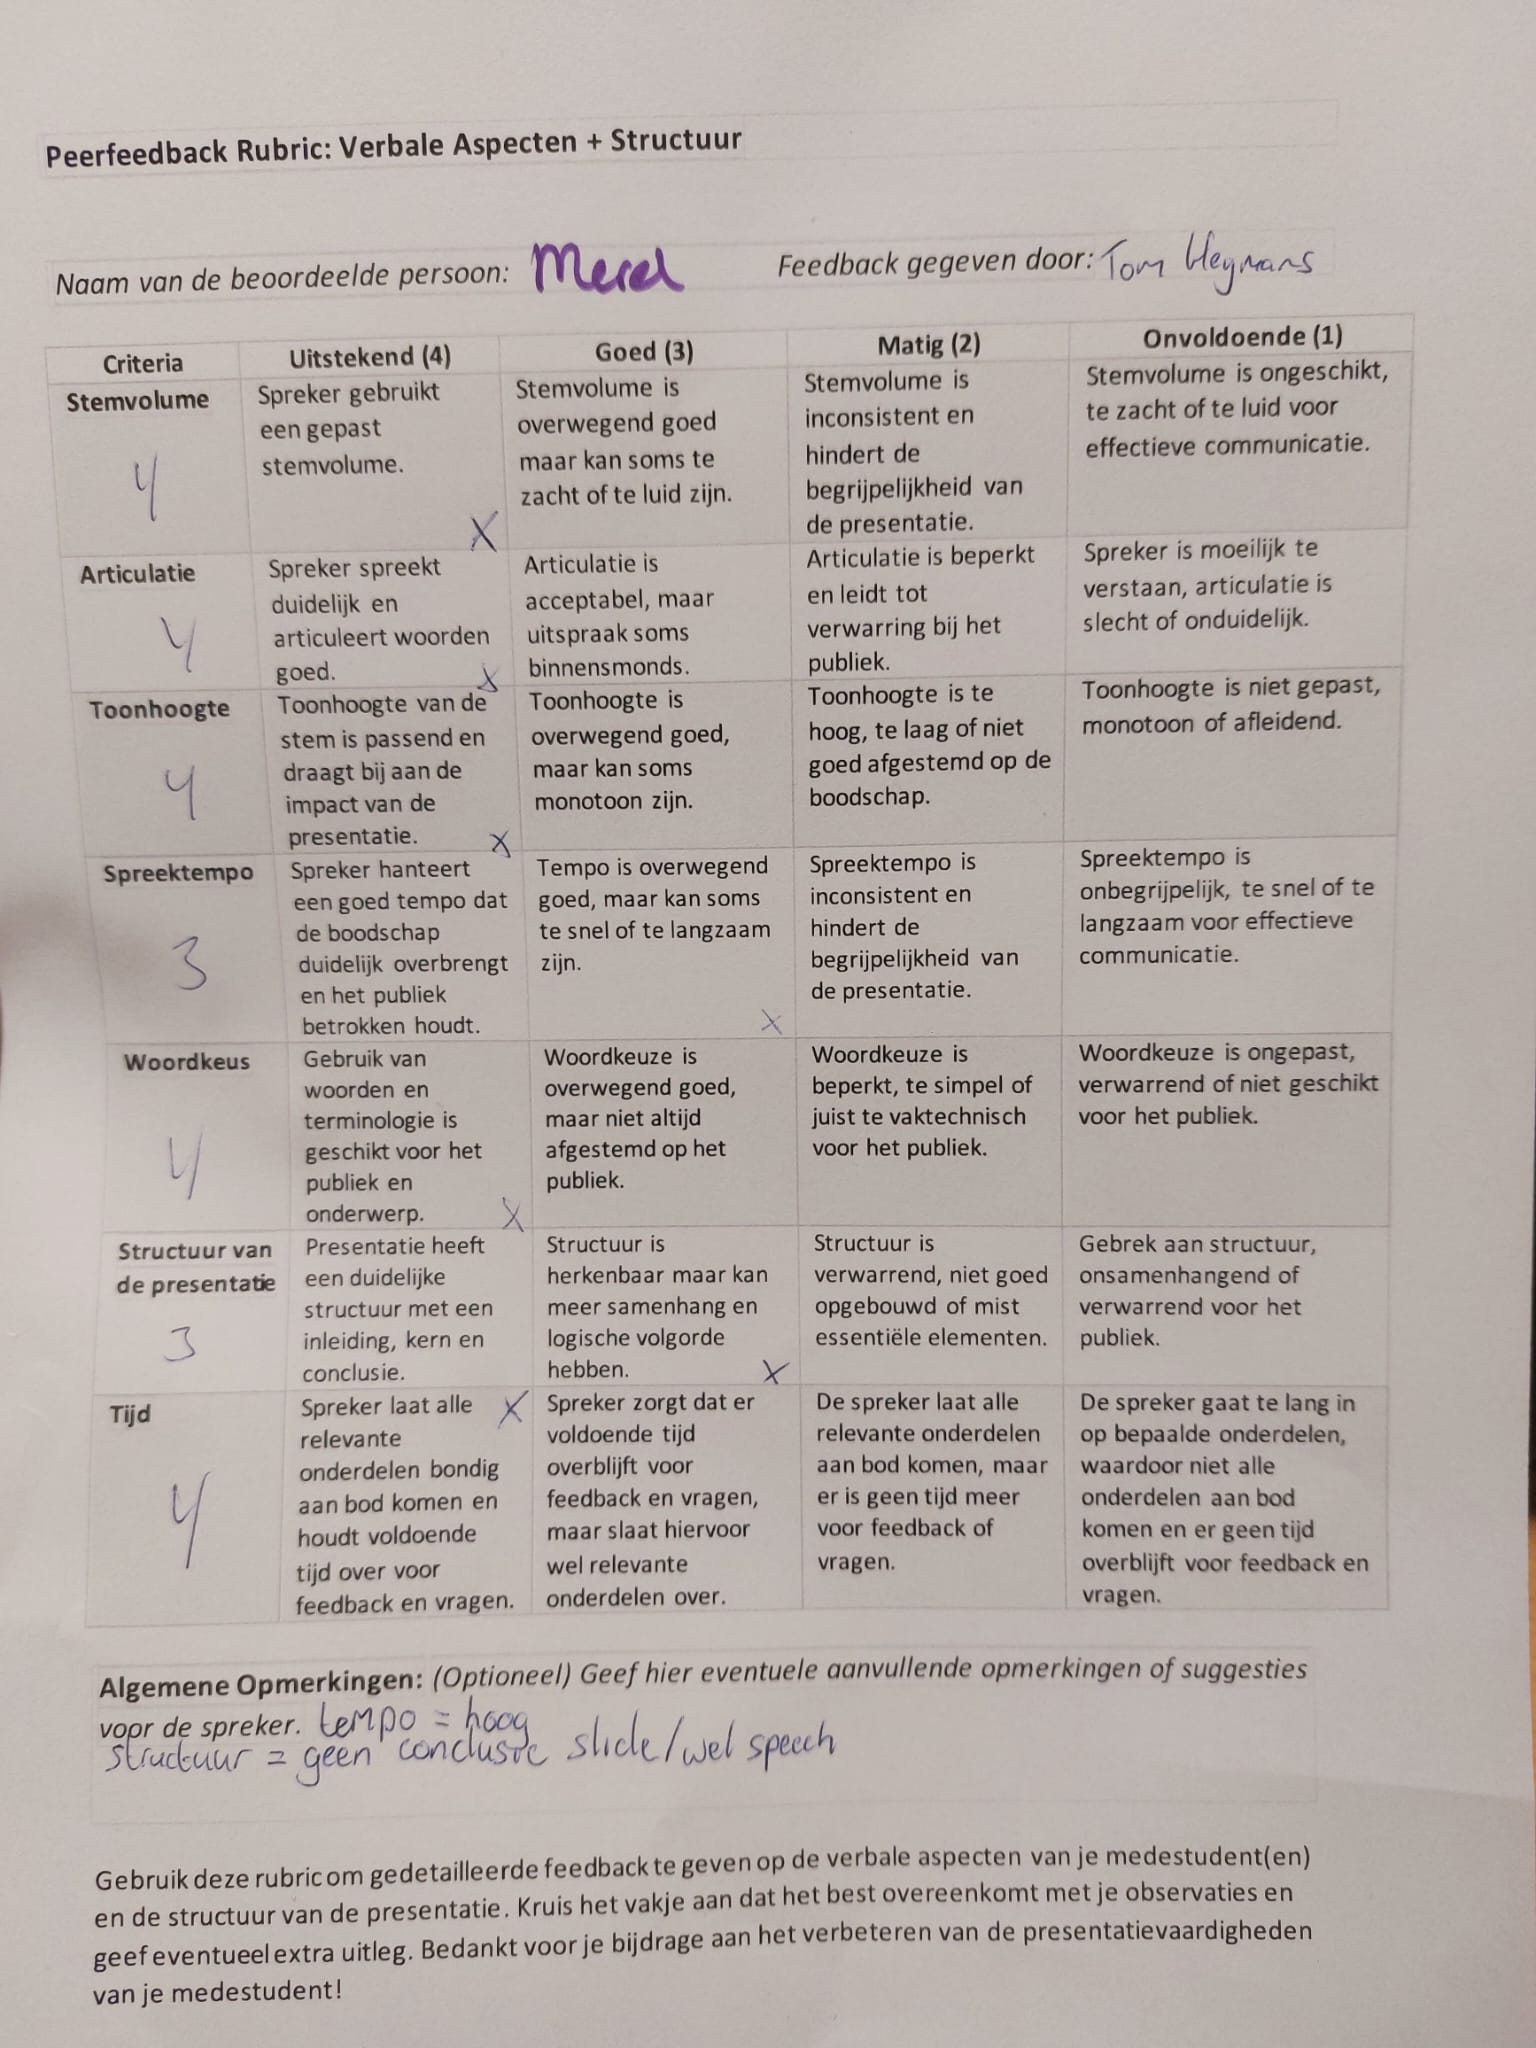 Peerfeedback Rubric: Verbale Aspecten + Structuur
Naam van de beoordeelde persoon: Merel Feedback gegeven door: Tom Heymans
Criteria
Uitstekend (4)
Goed (3)
Matig (2)
Onvoldoende (1)
Stemvolume
4
Spreker gebruikt
een gepast
stemvolume.
X
Stemvolume is
overwegend goed
maar kan soms te
zacht of te luid zijn.
Stemvolume is
inconsistent en
hindert de
begrijpelijkheid van
de presentatie.
Stemvolume is ongeschikt,
te zacht of te luid voor
effectieve communicatie.
Articulatie
4
Spreker spreekt
duidelijk en
articuleert woorden
goed. X
Articulatie is
acceptabel, maar
uitspraak soms
binnensmonds.
Articulatie is beperkt
en leidt tot
verwarring bij het
publiek.
Spreker is moeilijk te
verstaan, articulatie is
slecht of onduidelijk.
Toonhoogte
4
Toonhoogte van de
stem is passend en
draagt bij aan de
impact van de
presentatie. X
Toonhoogte is
overwegend goed,
maar kan soms
monotoon zijn.
Toonhoogte is te
hoog, te laag of niet
goed afgestemd op de
boodschap.
Toonhoogte is niet gepast,
monotoon of afleidend.
Spreektempo
3
Spreker hanteert
een goed tempo dat
de boodschap
duidelijk overbrengt
en het publiek
betrokken houdt.
Tempo is overwegend
goed, maar kan soms
te snel of te langzaam
zijn.
X
Spreektempo is
inconsistent en
hindert de
begrijpelijkheid van
de presentatie.
Spreektempo is
onbegrijpelijk, te snel of te
langzaam voor effectieve
communicatie.
Woordkeus
4
Gebruik van
woorden en
terminologie is
geschikt voor het
publiek en
onderwerp. X
Woordkeuze is
overwegend goed,
maar niet altijd
afgestemd op het
publiek.
Woordkeuze is
beperkt, te simpel of
juist te vaktechnisch
voor het publiek.
Woordkeuze is ongepast,
verwarrend of niet geschikt
voor het publiek.
Structuur van
de presentatie
3
Presentatie heeft
een duidelijke
structuur met een
inleiding, kern en
conclusie.
Structuur is
herkenbaar maar kan
meer samenhang en
logische volgorde
hebben. X
Structuur is
verwarrend, niet goed
opgebouwd of mist
essentiële elementen.
Gebrek aan structuur,
onsamenhangend of
verwarrend voor het
publiek.
Tijd
4
Spreker laat alle X
relevante
onderdelen bondig
aan bod komen en
houdt voldoende
tijd over voor
feedback en vragen.
Spreker zorgt dat er
voldoende tijd
overblijft voor
feedback en vragen,
maar slaat hiervoor
wel relevante
onderdelen over.
De spreker laat alle
relevante onderdelen
aan bod komen, maar
er is geen tijd meer
voor feedback of
vragen.
De spreker gaat te lang in
op bepaalde onderdelen,
waardoor niet alle
onderdelen aan bod
komen en er geen tijd
overblijft voor feedback en
vragen.
Algemene Opmerkingen: (Optioneel) Geef hier eventuele aanvullende opmerkingen of suggesties
voor de spreker. tempo = hoog
structuur = geen conclusie slide/wel speech
Gebruik deze rubric om gedetailleerde feedback te geven op de verbale aspecten van je medestudent(en)
en de structuur van de presentatie. Kruis het vakje aan dat het best overeenkomt met je observaties en
geef eventueel extra uitleg. Bedankt voor je bijdrage aan het verbeteren van de presentatievaardigheden
van je medestudent!